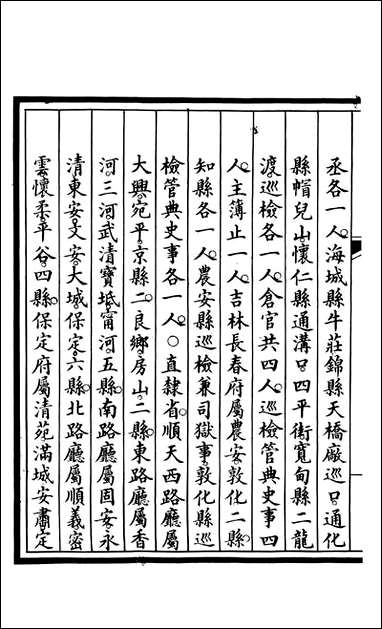 丞各一人海城縣牛莊錦縣天橋廠巡口通化
縣帽兒山懷仁縣通溝口四平街寬甸縣二龍
渡巡檢各一人倉官共四人巡檢管典史事四
人主簿止一人吉林長春府屬農安敦化二縣
知縣各一人農安縣巡檢兼司獄事敦化縣巡
檢管典史事各一人〇直隸省順天西路廳屬
大興宛平京縣二良鄉房山二縣東路廳屬香
河三河武清寶坻甯河五縣南路廳屬固安永
清東安文安大城保定六縣北路廳屬順義密
雲懷柔平谷四縣保定府屬清苑滿城安肅定